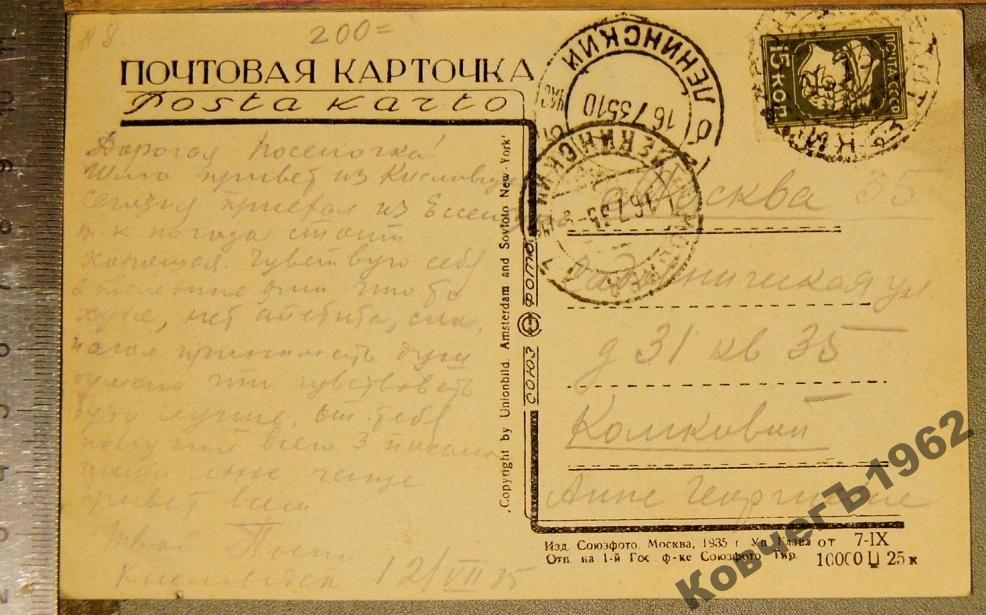 № 8
200=
ПОЧТОВАЯ КАРТОЧКА
Posta karto
Дорогая
Шлю привет из Кисловодска
сегодня приехал из
т-к погода стоит
хорошая. Чувствую себя
в последние дни что то
хуже, нет
начал принимать душ
думаю что чувствовать
буду лучше, от тебя
получил всего 3 письма
пиши мне чаще
привет всем
Твой
Кисловодск 12/VII 35
Copyright by Unionbild. Amsterdam and Sovfoto New-York
СОЮЗ ФОТО
ЛЕНИНСКИЙ
16 7 35 10
16.7.35
МОСКВА
ПОЧТА СССР
15 КОП.
Москва 35
ул
д 31 кв 35
Комковой
Анне Георгиевне
Изд. Союзфото. Москва, 1935 г. Уп. Главл от 7-IX
Отп. на 1-й Гос ф-ке Союзфото Тир. 10000 Ц 25 к
КовчегЪ1962